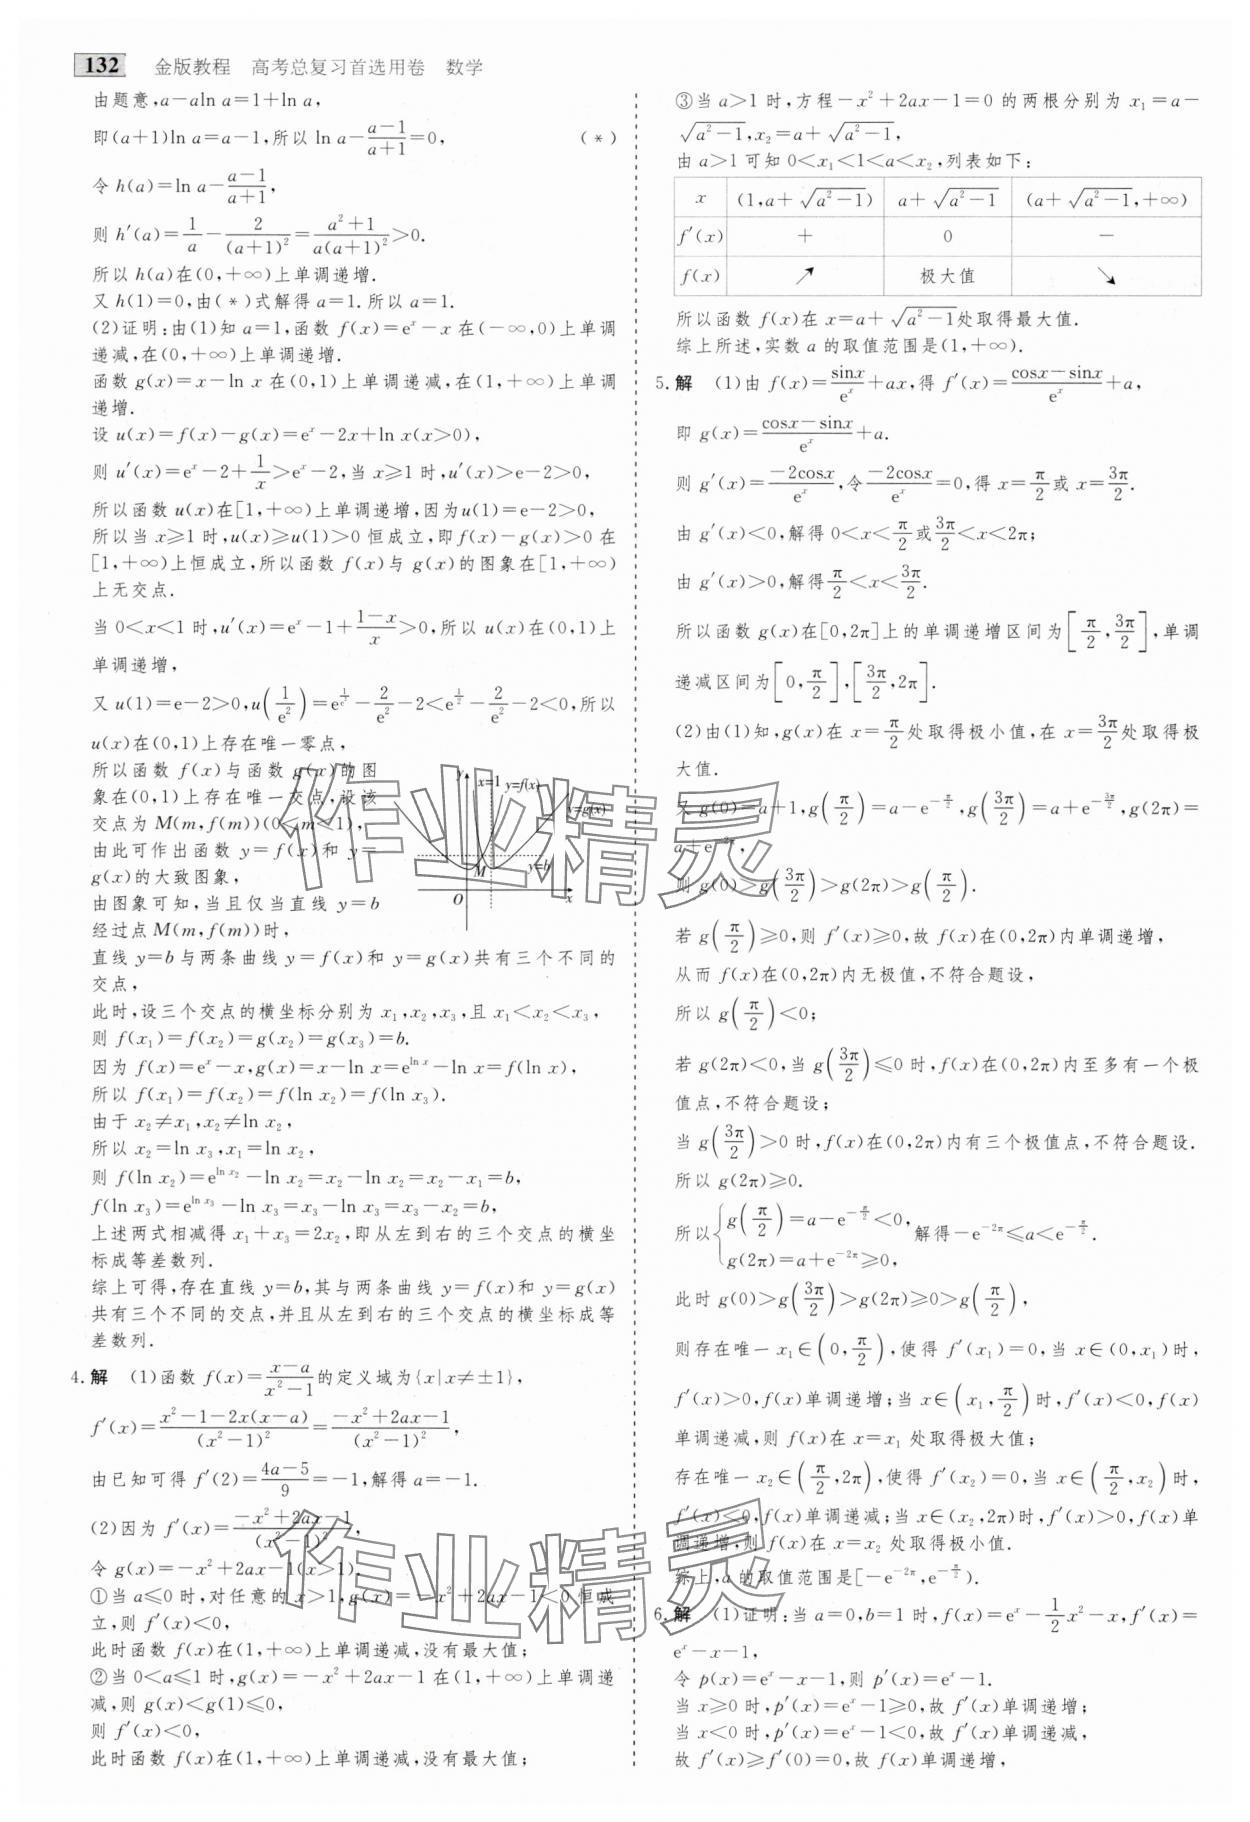 132 金版教程 高考总复习首选用卷 数学
由题意,a-aln a=1+ln a,
即(a+1)ln a=a-1,所以 ln a-\frac{a-1}{a+1}=0, (*)
令 h(a)=ln a-\frac{a-1}{a+1},
则 h′(a)=\frac{1}{a}-\frac{2}{(a+1)²}=\frac{a²+1}{a(a+1)²}>0.
所以 h(a)在(0,+∞)上单调递增.
又 h(1)=0,由(*)式解得 a=1.所以 a=1.
(2)证明:由(1)知 a=1,函数 f(x)=eˣ-x 在(-∞,0)上单调
递减,在(0,+∞)上单调递增.
函数 g(x)=x-ln x 在(0,1)上单调递减,在(1,+∞)上单调
递增.
设 u(x)=f(x)-g(x)=eˣ-2x+ln x(x>0),
则 u′(x)=eˣ-2+\frac{1}{x}>eˣ-2,当 x≥1 时,u′(x)>e-2>0,
所以函数 u(x)在[1,+∞)上单调递增,因为u(1)=e-2>0,
所以当 x≥1 时,u(x)≥u(1)>0 恒成立,即f(x)-g(x)>0 在
[1,+∞)上恒成立,所以函数 f(x)与 g(x)的图象在[1,+∞)
上无交点.
当 0<x<1 时,u′(x)=eˣ-1+\frac{1-x}{x}>0,所以 u(x)在(0,1)上
单调递增,
又 u(1)=e-2>0,u(\frac{1}{e²})=e^{\frac{1}{e²}}-\frac{2}{e²}-2<e^{\frac{1}{2}}-\frac{2}{e²}-2<0,所以
u(x)在(0,1)上存在唯一零点,
所以函数 f(x)与函数 g(x)的图
象在(0,1)上存在唯一交点,设该
交点为 M(m,f(m))(0<m<1),
由此可作出函数 y=f(x)和 y=
g(x)的大致图象,
由图象可知,当且仅当直线 y=b
经过点 M(m,f(m))时,
y x=1 y=f(x)
y=g(x)
M y=b
O x
直线 y=b 与两条曲线 y=f(x)和 y=g(x)共有三个不同的
交点,
此时,设三个交点的横坐标分别为 x₁,x₂,x₃,且 x₁<x₂<x₃,
则 f(x₁)=f(x₂)=g(x₂)=g(x₃)=b.
因为 f(x)=eˣ-x,g(x)=x-ln x=e^{ln x}-ln x=f(ln x),
所以 f(x₁)=f(x₂)=f(ln x₂)=f(ln x₃).
由于 x₂≠x₁,x₂≠ln x₂,
所以 x₂=ln x₃,x₁=ln x₂,
则 f(ln x₂)=e^{ln x₂}-ln x₂=x₂-ln x₂=x₂-x₁=b,
f(ln x₃)=e^{ln x₃}-ln x₃=x₃-ln x₃=x₃-x₂=b,
上述两式相减得 x₁+x₃=2x₂,即从左到右的三个交点的横坐
标成等差数列.
综上可得,存在直线 y=b,其与两条曲线 y=f(x)和 y=g(x)
共有三个不同的交点,并且从左到右的三个交点的横坐标成等
差数列.
4. 解 (1)函数 f(x)=\frac{x-a}{x²-1}的定义域为{x|x≠±1},
f′(x)=\frac{x²-1-2x(x-a)}{(x²-1)²}=\frac{-x²+2ax-1}{(x²-1)²},
由已知可得 f′(2)=\frac{4a-5}{9}=-1,解得 a=-1.
(2)因为 f′(x)=\frac{-x²+2ax-1}{(x²-1)²},
令 g(x)=-x²+2ax-1(x>1).
①当 a≤0 时,对任意的 x>1,g(x)=-x²+2ax-1<0 恒成
立,则 f′(x)<0,
此时函数 f(x)在(1,+∞)上单调递减,没有最大值;
②当 0<a≤1 时,g(x)=-x²+2ax-1 在(1,+∞)上单调递
减,则 g(x)<g(1)≤0,
则 f′(x)<0,
此时函数 f(x)在(1,+∞)上单调递减,没有最大值;
③当 a>1 时,方程-x²+2ax-1=0 的两根分别为 x₁=a-
\sqrt{a²-1},x₂=a+\sqrt{a²-1},
由 a>1 可知 0<x₁<1<a<x₂,列表如下:
x (1,a+\sqrt{a²-1}) a+\sqrt{a²-1} (a+\sqrt{a²-1},+∞)
f′(x) + 0 -
f(x) ↗ 极大值 ↘
所以函数 f(x)在 x=a+\sqrt{a²-1}处取得最大值.
综上所述,实数 a 的取值范围是(1,+∞).
5. 解 (1)由 f(x)=\frac{sinx}{eˣ}+ax,得 f′(x)=\frac{cosx-sinx}{eˣ}+a,
即 g(x)=\frac{cosx-sinx}{eˣ}+a.
则 g′(x)=\frac{-2cosx}{eˣ},令\frac{-2cosx}{eˣ}=0,得 x=\frac{π}{2}或 x=\frac{3π}{2}.
由 g′(x)<0,解得 0<x<\frac{π}{2}或\frac{3π}{2}<x<2π;
由 g′(x)>0,解得\frac{π}{2}<x<\frac{3π}{2}.
所以函数 g(x)在[0,2π]上的单调递增区间为[\frac{π}{2},\frac{3π}{2}],单调
递减区间为[0,\frac{π}{2}],[\frac{3π}{2},2π].
(2)由(1)知,g(x)在 x=\frac{π}{2}处取得极小值,在 x=\frac{3π}{2}处取得极
大值.
又 g(0)=a+1,g(\frac{π}{2})=a-e^{-\frac{π}{2}},g(\frac{3π}{2})=a+e^{-\frac{3π}{2}},g(2π)=
a+e^{-2π},
则 g(0)>g(\frac{3π}{2})>g(2π)>g(\frac{π}{2}).
若 g(\frac{π}{2})≥0,则 f′(x)≥0,故 f(x)在(0,2π)内单调递增,
从而 f(x)在(0,2π)内无极值,不符合题设,
所以 g(\frac{π}{2})<0;
若 g(2π)<0,当 g(\frac{3π}{2})≤0 时,f(x)在(0,2π)内至多有一个极
值点,不符合题设;
当 g(\frac{3π}{2})>0 时,f(x)在(0,2π)内有三个极值点,不符合题设.
所以 g(2π)≥0.
所以{g(\frac{π}{2})=a-e^{-\frac{π}{2}}<0, g(2π)=a+e^{-2π}≥0, 解得-e^{-2π}≤a<e^{-\frac{π}{2}}.
此时 g(0)>g(\frac{3π}{2})>g(2π)≥0>g(\frac{π}{2}),
则存在唯一 x₁∈(0,\frac{π}{2}),使得 f′(x₁)=0,当 x∈(0,x₁)时,
f′(x)>0,f(x)单调递增;当 x∈(x₁,\frac{π}{2})时,f′(x)<0,f(x)
单调递减,则 f(x)在 x=x₁ 处取得极大值;
存在唯一 x₂∈(\frac{π}{2},2π),使得 f′(x₂)=0,当 x∈(\frac{π}{2},x₂)时,
f′(x)<0,f(x)单调递减;当 x∈(x₂,2π)时,f′(x)>0,f(x)单
调递增,则 f(x)在 x=x₂ 处取得极小值.
综上,a 的取值范围是[-e^{-2π},e^{-\frac{π}{2}}).
6. 解 (1)证明:当 a=0,b=1 时,f(x)=eˣ-\frac{1}{2}x²-x,f′(x)=
eˣ-x-1,
令 p(x)=eˣ-x-1,则 p′(x)=eˣ-1.
当 x≥0 时,p′(x)=eˣ-1≥0,故 f′(x)单调递增;
当 x<0 时,p′(x)=eˣ-1<0,故 f′(x)单调递减,
故 f′(x)≥f′(0)=0,故 f(x)单调递增,
作业精灵
作业精灵